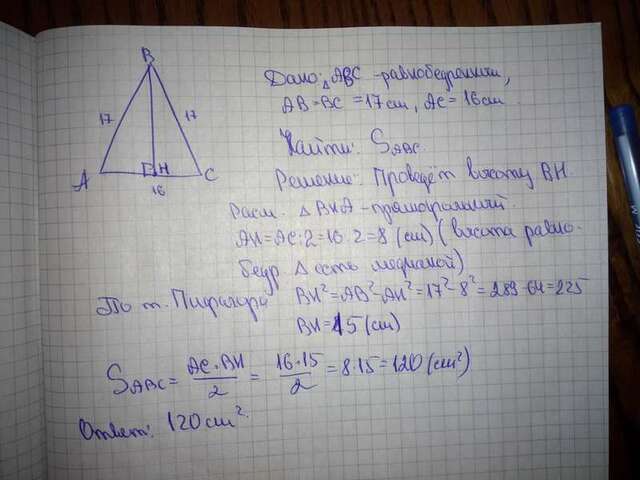 B
17
17
A
H
C
16
Дано: △ABC - равнобедренный,
AB=BC=17 cm, AC=16 cm.
Найти: S ABC.
Решение: Проведём высоту BH.
Расм. △BHA - прямоугольный.
AH=AC:2=16:2=8 (cm) (высота равно-
бедр. △ есть медианой)
По т. Пифагора BH²=AB²-AH²=17²-8²=289-64=225
BH=15 (cm)
S ABC = AC·BH / 2 = 16·15 / 2 = 8·15=120 (cm²)
Ответ: 120 cm².